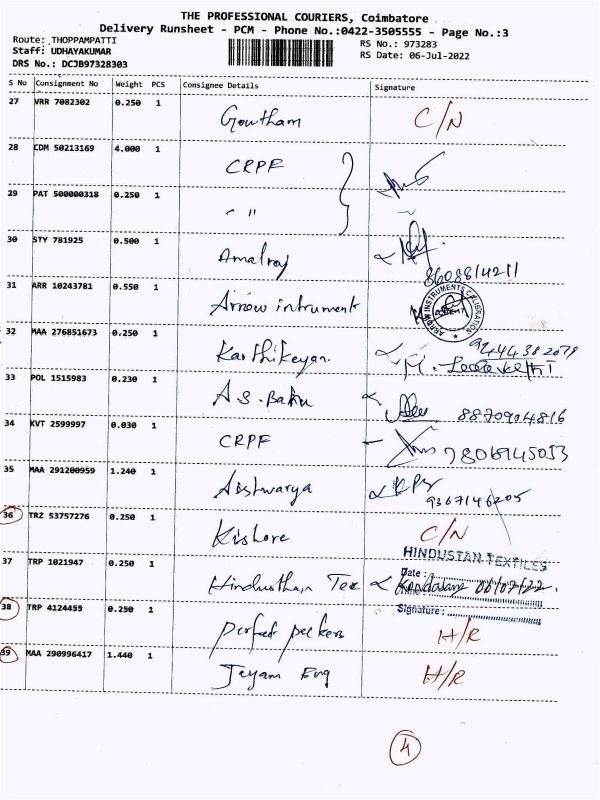 THE PROFESSIONAL COURIERS, Coimbatore
Delivery Runsheet - PCM - Phone No.:0422-3505555 - Page No.:3
Route: THOPPAMPATTI RS No.: 973283
Staff: UDHAYAKUMAR RS Date: 06-Jul-2022
DRS No.: DCJB97328303
S No Consignment No Weight PCS Consignee Details Signature
27 VRR 7082302 0.250 1
Goutham C/N
28 CDM 50213169 4.000 1
CRPF
29 PAT 500000318 0.250 1
" "
30 STY 781925 0.500 1
Amalraj
8608814211
31 ARR 10243781 0.550 1
Arrow intrument
ARROW INSTRUMENTS CALIBRATION
32 MAA 276851673 0.250 1
9444382079
Karthikeyan.
33 POL 1515983 0.230 1
A.S. Babu 8870904816
34 KVT 2599997 0.030 1
CRPF 7806945053
35 MAA 291200959 1.240 1
Aishwarya 9367146205
36 TRZ 53757276 0.250 1
Kishore C/N
HINDUSTAN TEXTILES
37 TRP 1021947 0.250 1
Date :
Hindusthan Tex 06/07/22.
38 TRP 4124455 0.250 1
Signature :
perfect packers H/R
39 MAA 290996417 1.440 1
Jeyam Eng H/R
4